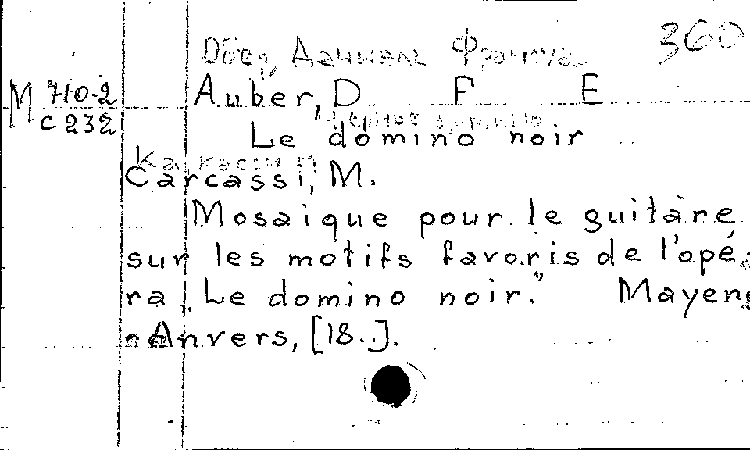 Обер, Даниель Франсуа 360
М 710-2 Auber, D F E
с 232
Le domino noir
Каркасси М
Carcassi, M.
Mosaique pour le guitare
sur les motifs favoris de l'opé,
ra „Le domino noir.” Mayeng
Anvers, [18..].